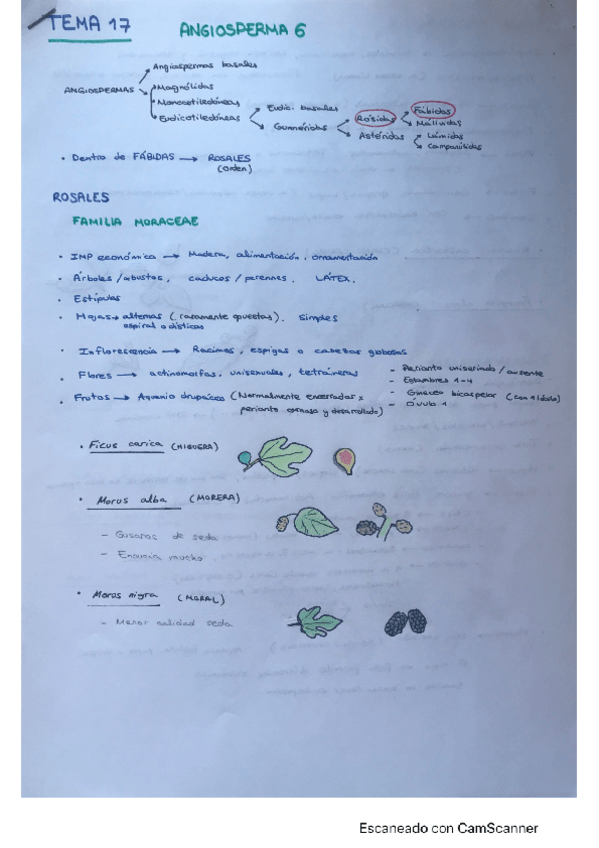 TEMA 17
ANGIOSPERMA 6
Angiospermas basales
ANGIOSPERMAS
Magnólidas
Monocotiledóneas
Eudicotiledóneas
Eudic. basales
Gunnéridas
Rósidas
Astéridas
Fábidas
Málvidas
Lámidas
Campanúlidas
• Dentro de FÁBIDAS → ROSALES
(orden)
ROSALES
FAMILIA MORACEAE
• IMP económica → Madera, alimentación, ornamentación
• Árboles / abustos, caducos / perennes. LÁTEX.
• Estípulas
• Hojas → alternas (raramente opuestas). Simples
espiral o dísticas
• Inflorescencia → Racimos, espigas o cabezas globosas
• Flores → actinomorfas, unisexuales, tetrámeras
- Perianto uniseriado / ausente
- Estambres 1-4
- Gineceo bicarpelar (con 1 lóculo)
- Óvulo 1
• Frutos → Aquenio drupáceo (Normalmente encerrados x
perianto carnoso y desarrollado)
• Ficus carica (HIGUERA)
• Morus alba (MORERA)
- Gusanos de seda
- Ensucia mucho
• Moros nigra (MORAL)
- Menor calidad seda
Escaneado con CamScanner